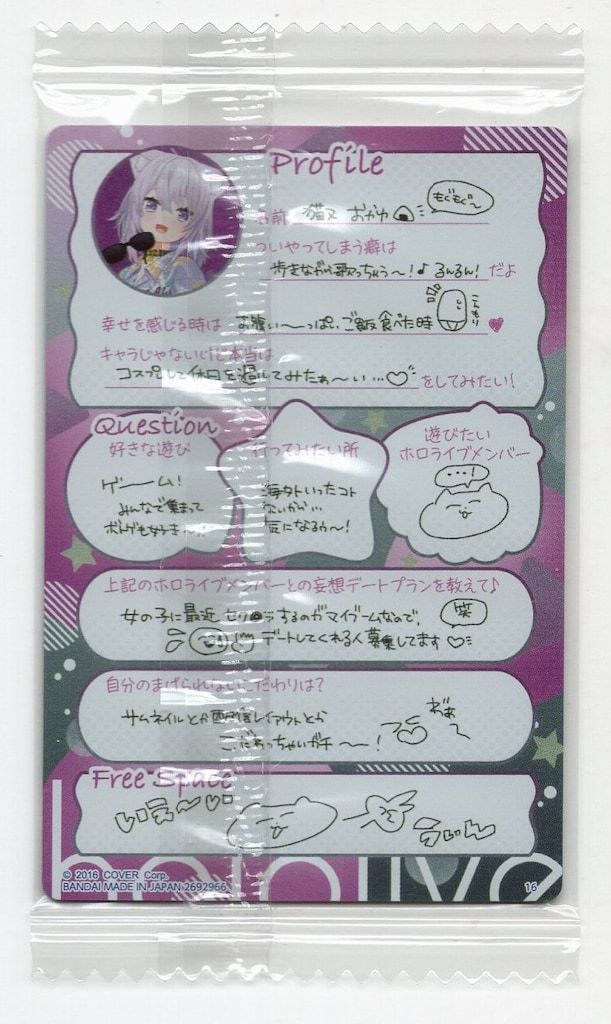 Profile
名前 猫又 おかゆ
もぐもぐ〜
ついやってしまう癖は
歩きながら歌っちゃう〜!♪ るんるん! だよ
幸せを感じる時は お腹い〜っぱい、ご飯食べた時
こんもり
キャラじゃないけど本当は
コスプレして休日を過してみたぁ〜い…♡ をしてみたい!
Question
好きな遊び
ゲーム!
みんなで集まって
ボドゲも好き〜!!
行ってみたい所
海外いったコト
ないから…
気になるぅ〜!
遊びたい
ホロライブメンバー
…!
上記のホロライブメンバーとの妄想デートプランを教えて♪
女の子に最近 セリ するのがマイブームなので、
笑
デートしてくれる人募集してます ♡
自分のまげられないこだわりは?
サムネイルとか配信レイアウトとか
こだわっちゃいガチ 〜!
Free Space
いえ〜い
うぃん
hololive
© 2016 COVER Corp.
BANDAI MADE IN JAPAN 2692966
16